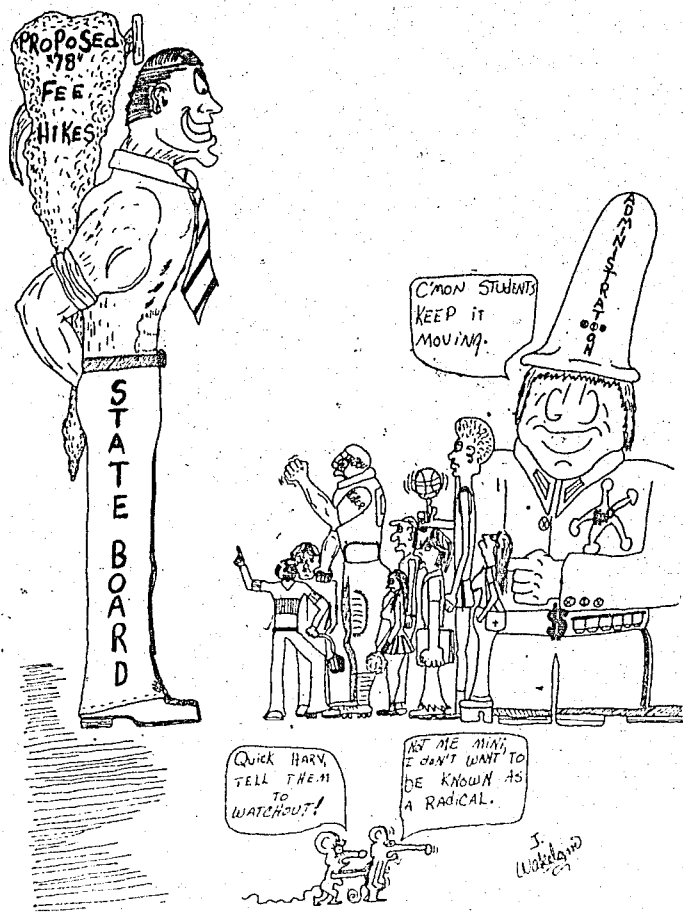 PROPOSEd
"78"
FEE
HIKES
ADMINISTRATION
C'MON STUDENTS
KEEP IT
MOVING.
STATE BOARD
$
QUICK HARV,
TELL THEM
TO
WATCHOUT!
NOT ME MINI,
I dON'T WANT TO
BE KNOWN AS
A RADICAL.
J.